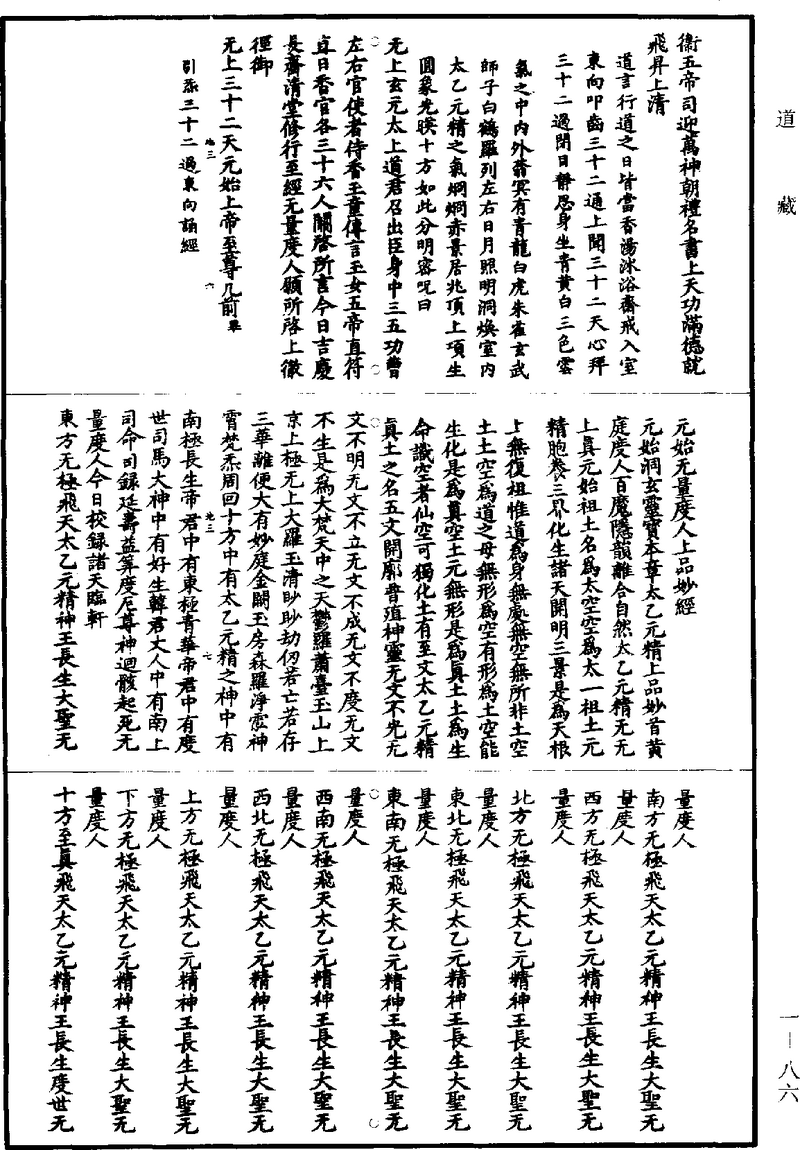 道藏
衞五帝司迎萬神朝禮名書上天功滿德就
飛昇上清
道言行道之日皆當香湯沐浴齋戒入室
東向叩齒三十二通上聞三十二天心拜
三十二過閉目靜思身坐青黃白三色雲
氣之中内外蓊冥有青龍白虎朱雀玄武
師子白鶴羅列左右日月照明洞煥室内
太乙元精之氣烱烱赤景居兆頂上項生
圓象光暎十方如此分明密呪曰
无上玄元太上道君召出臣身中三五功曹
左右官使者侍香玉童傳言玉女五帝直符
直日香官各三十六人關啓所言今日吉慶
長齋清堂修行至經无量度人願所啓上徹
徑御
无上三十二天元始上帝至尊几前畢
引炁三十二過東向誦經
元始无量度人上品妙經
元始洞玄靈寶本章太乙元精上品妙首黃
庭度人百魔隱韻離合自然太乙元精无无
上眞元始祖土名爲太空空爲太一祖土元
精胞養三界化生諸天開明三景是爲天根
上無復祖惟道爲身無處無空無所非土空
土土空爲道之母無形爲空有形爲土空能
生化是爲眞空土元無形是爲眞土土爲生
命識空者仙空可獨化土有至文太乙元精
眞土之名五文開廓普殖神靈无文不光无
文不明无文不立无文不成无文不度无文
不生是爲大梵天中之天鬱羅蕭臺玉山上
京上極无上大羅玉清眇眇劫仞若亡若存
三華離便大有妙庭金闕玉房森羅淨泓神
霄梵炁周回十方中有太乙元精之神中有
南極長生帝君中有東極青華帝君中有度
世司馬大神中有好生韓君丈人中有南上
司命司録延壽益筭度厄尊神迴骸起死无
量度人今日校録諸天臨軒
東方无極飛天太乙元精神王長生大聖无
量度人
南方无極飛天太乙元精神王長生大聖无
量度人
西方无極飛天太乙元精神王長生大聖无
量度人
北方无極飛天太乙元精神王長生大聖无
量度人
東北无極飛天太乙元精神王長生大聖无
量度人
東南无極飛天太乙元精神王長生大聖无
量度人
西南无極飛天太乙元精神王長生大聖无
量度人
西北无極飛天太乙元精神王長生大聖无
量度人
上方无極飛天太乙元精神王長生大聖无
量度人
下方无極飛天太乙元精神王長生大聖无
量度人
十方至眞飛天太乙元精神王長生度世无
地三 六
地三 七
一—八六